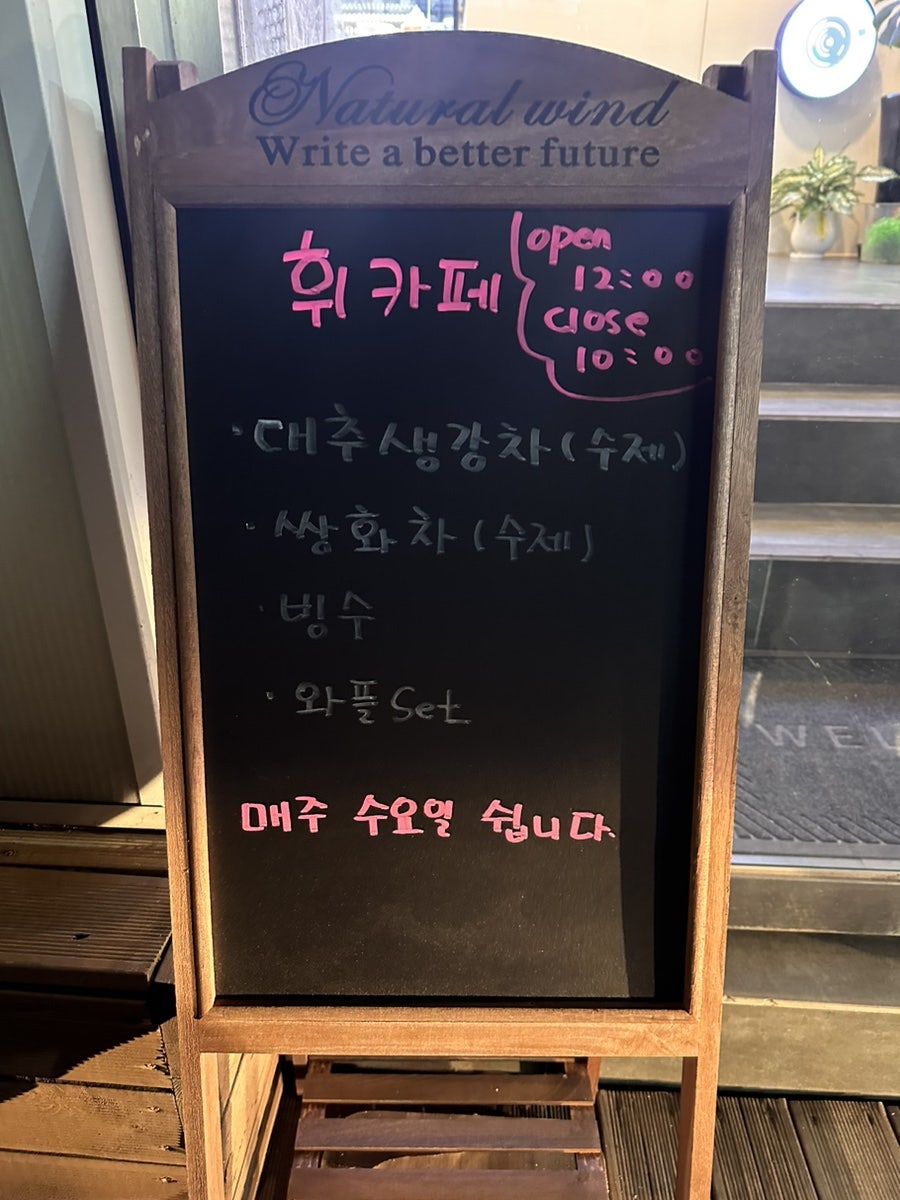 Natural wind
Write a better future
휘카페
open
12:00
close
10:00
· 대추생강차 (수제)
· 쌍화차 (수제)
· 빙수
· 와플 Set
매주 수요일 쉽니다.